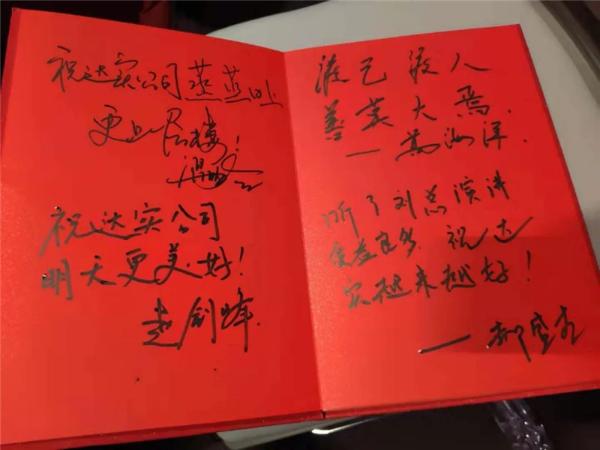 祝达实公司蒸蒸日上
更上层楼！
祝达实公司
明天更美好！
赵剑峰
渡己渡人
善莫大焉.
——高海洋.
听了刘总演讲
受益良多. 祝达
实越来越好！
——郝